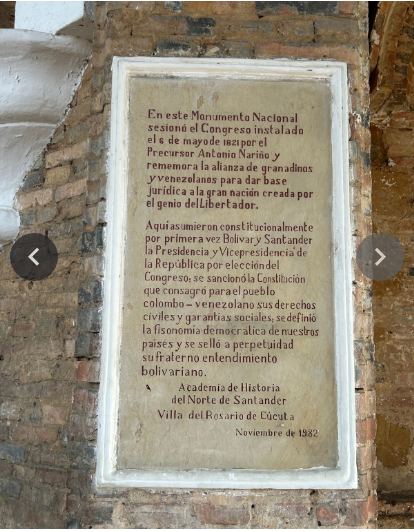 En este Monumento Nacional
sesionó el Congreso instalado
el 6 de mayo de 1821 por el
Precursor Antonio Nariño y
rememora la alianza de granadinos
y venezolanos para dar base
jurídica a la gran nación creada por
el genio del Libertador.
Aquí asumieron constitucionalmente
por primera vez Bolívar y Santander
la Presidencia y Vicepresidencia de
la República por elección del
Congreso; se sancionó la Constitución
que consagró para el pueblo
colombo-venezolano sus derechos
civiles y garantías sociales; se definió
la fisonomía democrática de nuestros
países y se selló a perpetuidad
su fraterno entendimiento
bolivariano.
Academia de Historia
del Norte de Santander
Villa del Rosario de Cúcuta
Noviembre de 1982